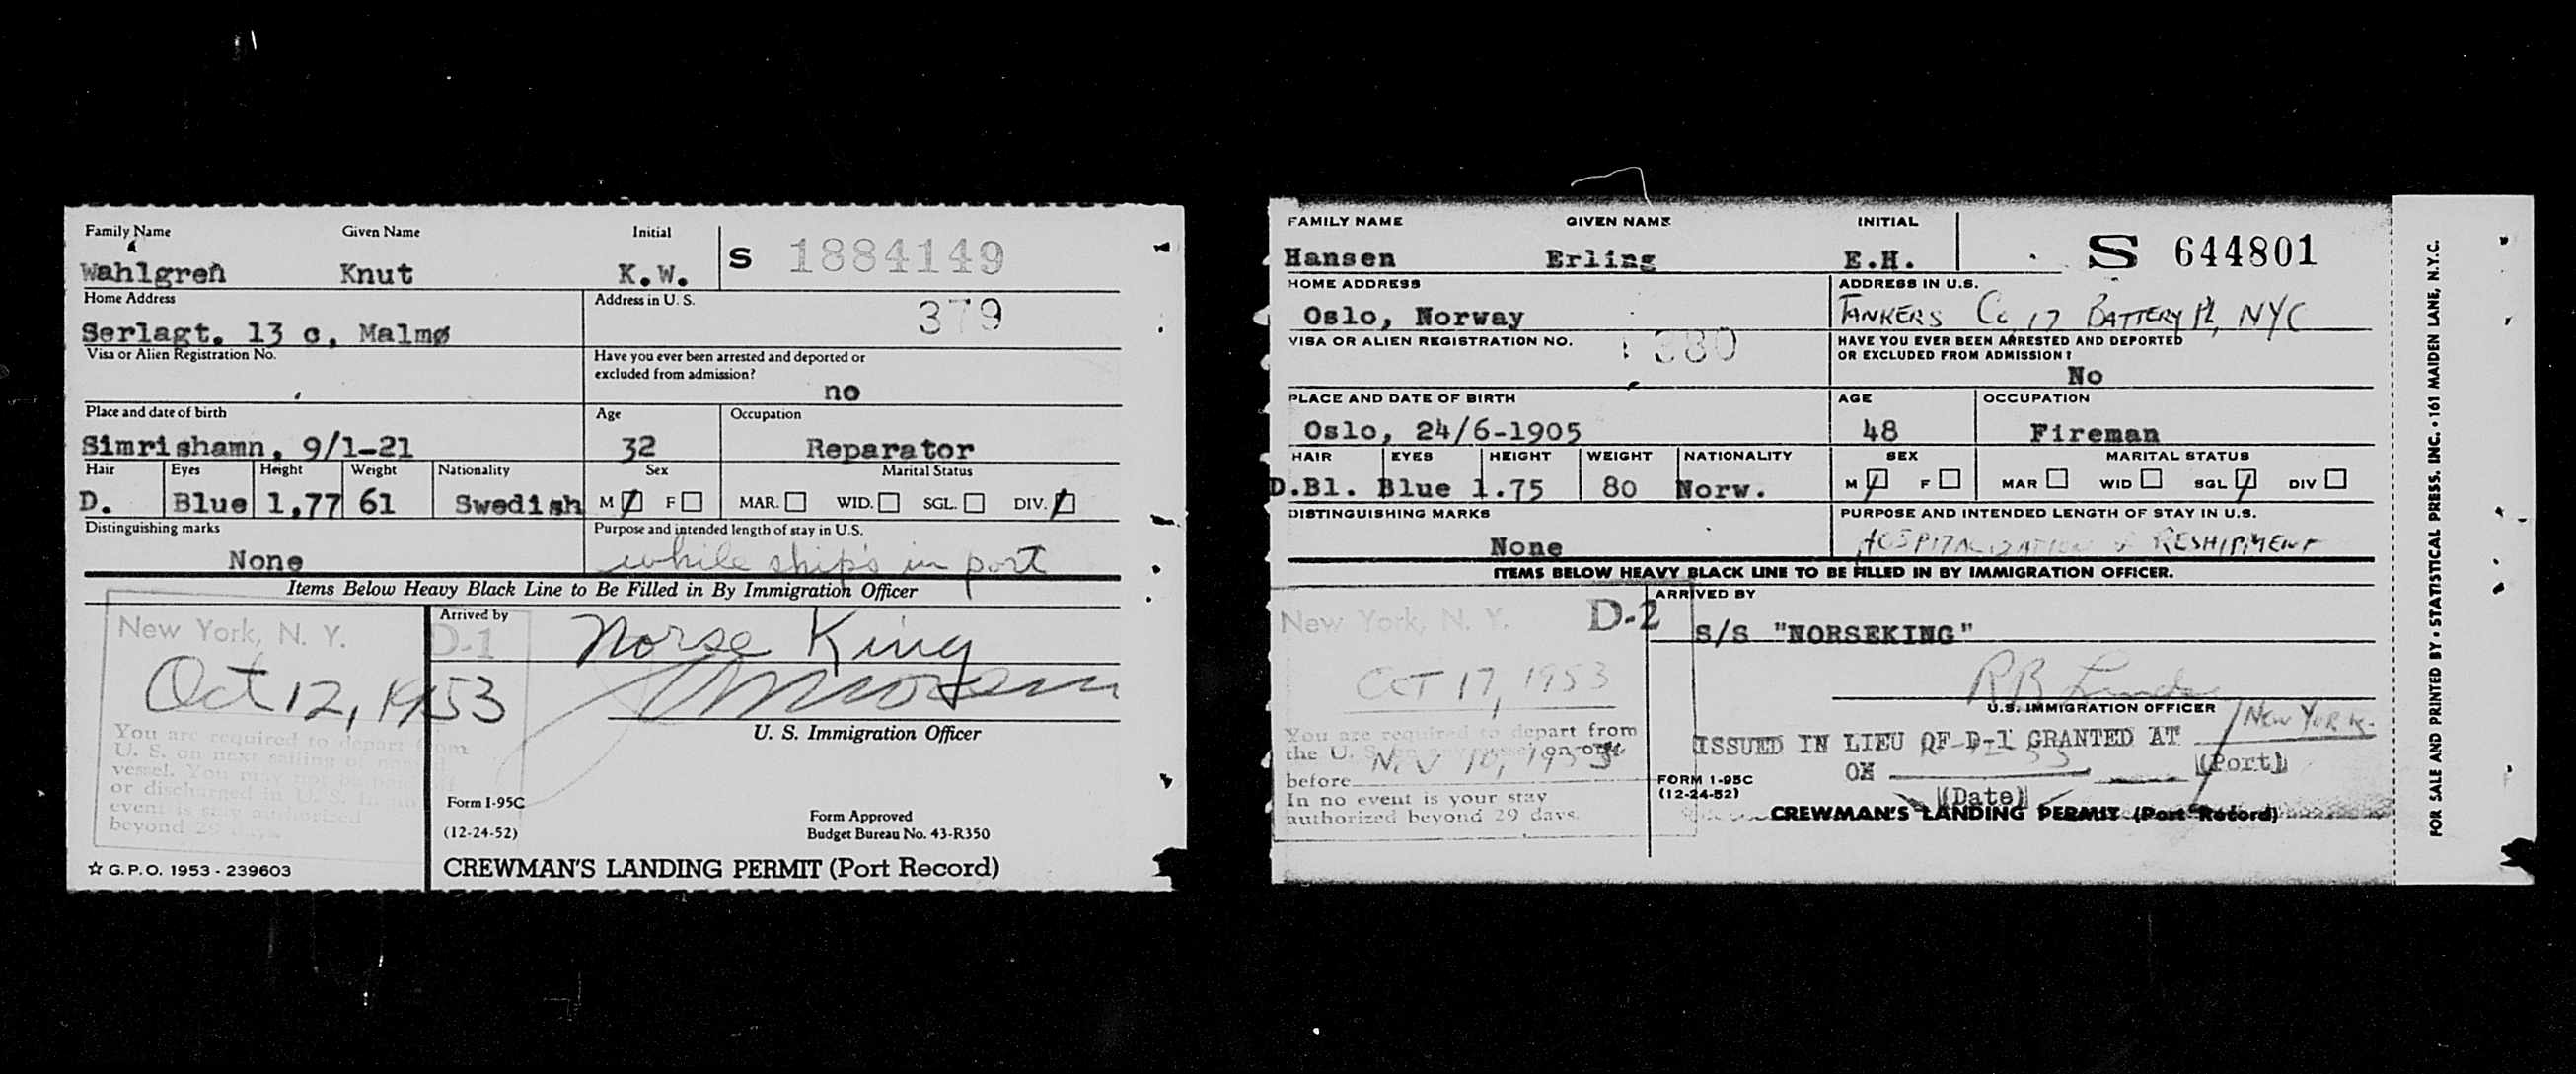 Family Name Given Name Initial
Wahlgren Knut K.W. S 1884149
Home Address Address in U. S. 379
Serlagt. 13 c, Malmø
Visa or Alien Registration No. Have you ever been arrested and deported or
excluded from admission?
no
Place and date of birth Age Occupation
Simrishamn, 9/1-21 32 Reparator
Hair Eyes Height Weight Nationality Sex Marital Status
D. Blue 1,77 61 Swedish M F MAR. WID. SGL. DIV.
Distinguishing marks Purpose and intended length of stay in U.S.
None while ship's in port
Items Below Heavy Black Line to Be Filled in By Immigration Officer
Arrived by
New York, N. Y. D-1 Norse King
Oct 12, 1953
U. S. Immigration Officer
You are required to depart from
U. S. on next sailing of
vessel. You may not be paid off
or discharged in U. S. In no
event is stay authorized
beyond 29 days.
Form I-95C
(12-24-52)
Form Approved
Budget Bureau No. 43-R350
☆ G.P.O. 1953 - 239603
CREWMAN'S LANDING PERMIT (Port Record)
FAMILY NAME GIVEN NAME INITIAL
Hansen Erling E.H. S 644801
HOME ADDRESS ADDRESS IN U.S.
Oslo, Norway TANKERS Co 17 BATTERY Pl, NYC
VISA OR ALIEN REGISTRATION NO. 380 HAVE YOU EVER BEEN ARRESTED AND DEPORTED
OR EXCLUDED FROM ADMISSION?
No
PLACE AND DATE OF BIRTH AGE OCCUPATION
Oslo, 24/6-1905 48 Fireman
HAIR EYES HEIGHT WEIGHT NATIONALITY SEX MARITAL STATUS
D.Bl. Blue 1.75 80 Norw. M F MAR WID SGL DIV
DISTINGUISHING MARKS PURPOSE AND INTENDED LENGTH OF STAY IN U.S.
None HOSPITALIZATION & RESHIPMENT
ITEMS BELOW HEAVY BLACK LINE TO BE FILLED IN BY IMMIGRATION OFFICER.
ARRIVED BY
New York, N. Y. D-2 S/S "NORSEKING"
OCT 17, 1953
U.S. IMMIGRATION OFFICER
You are required to depart from
the U. S. on any vessel on or
before Nov 10, 1953
In no event is your stay
authorized beyond 29 days.
ISSUED IN LIEU OF D-1 GRANTED AT NEW YORK
(Port)
ON
(Date)
FORM I-95C
(12-24-52)
CREWMAN'S LANDING PERMIT (Port Record)
FOR SALE AND PRINTED BY • STATISTICAL PRESS. INC. • 161 MAIDEN LANE, N.Y.C.